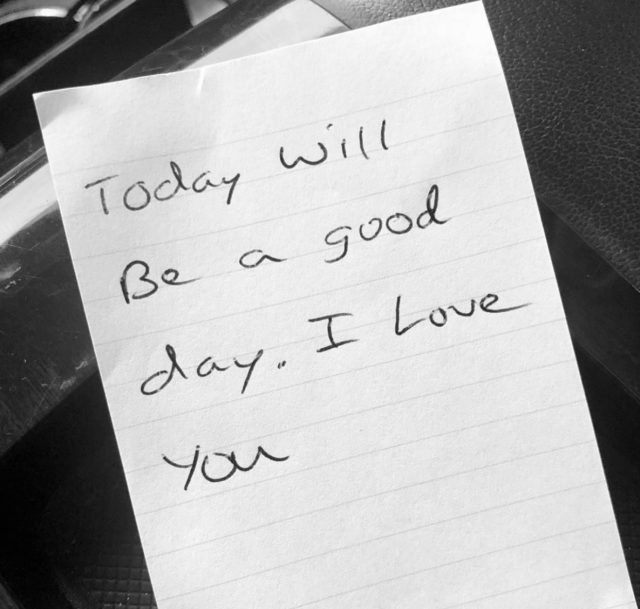 Today Will
Be a good
day. I Love
you